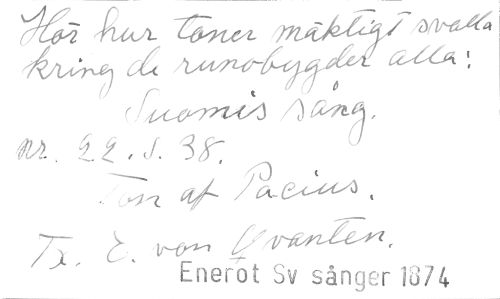 Hör hur toner mäktigt svalla
kring de runobygder alla:
Suomis sång.
nr. 22. s. 38.
Ton af Pacius.
Tx. E. von Qvanten.
Enerot Sv sånger 1874